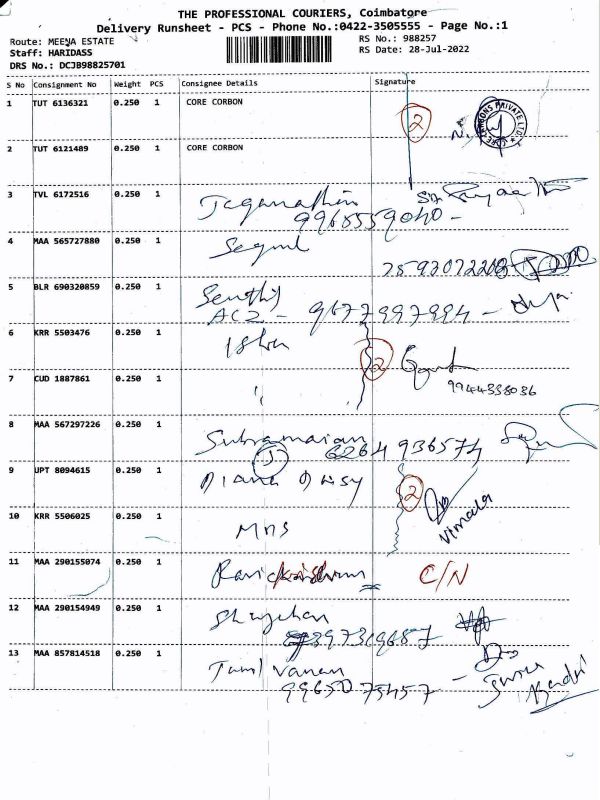 THE PROFESSIONAL COURIERS, Coimbatore
Delivery Runsheet - PCS - Phone No.:0422-3505555 - Page No.:1
Route: MEENA ESTATE
RS No.: 988257
Staff: HARIDASS
RS Date: 28-Jul-2022
DRS No.: DCJB98825701
S No Consignment No Weight PCS Consignee Details Signature
1 TUT 6136321 0.250 1 CORE CORBON
2
2 TUT 6121489 0.250 1 CORE CORBON
3 TVL 6172516 0.250 1 Jeganathan
9965559040 -
4 MAA 565727880 0.250 1
5 BLR 690320859 0.250 1 Senthil
ACZ - 9677997994 -
6 KRR 5503476 0.250 1
2
7 CUD 1887861 0.250 1 "
9944338036
8 MAA 567297226 0.250 1 Subramanian
6264 936574
9 UPT 8094615 0.250 1 Diana Daisy
2
Vimala
10 KRR 5506025 0.250 1 MNS
11 MAA 290155074 0.250 1 Ravikrishnan C/N
12 MAA 290154949 0.250 1 Shajahan
13 MAA 857814518 0.250 1 Tamil Vanan
9965073457 -